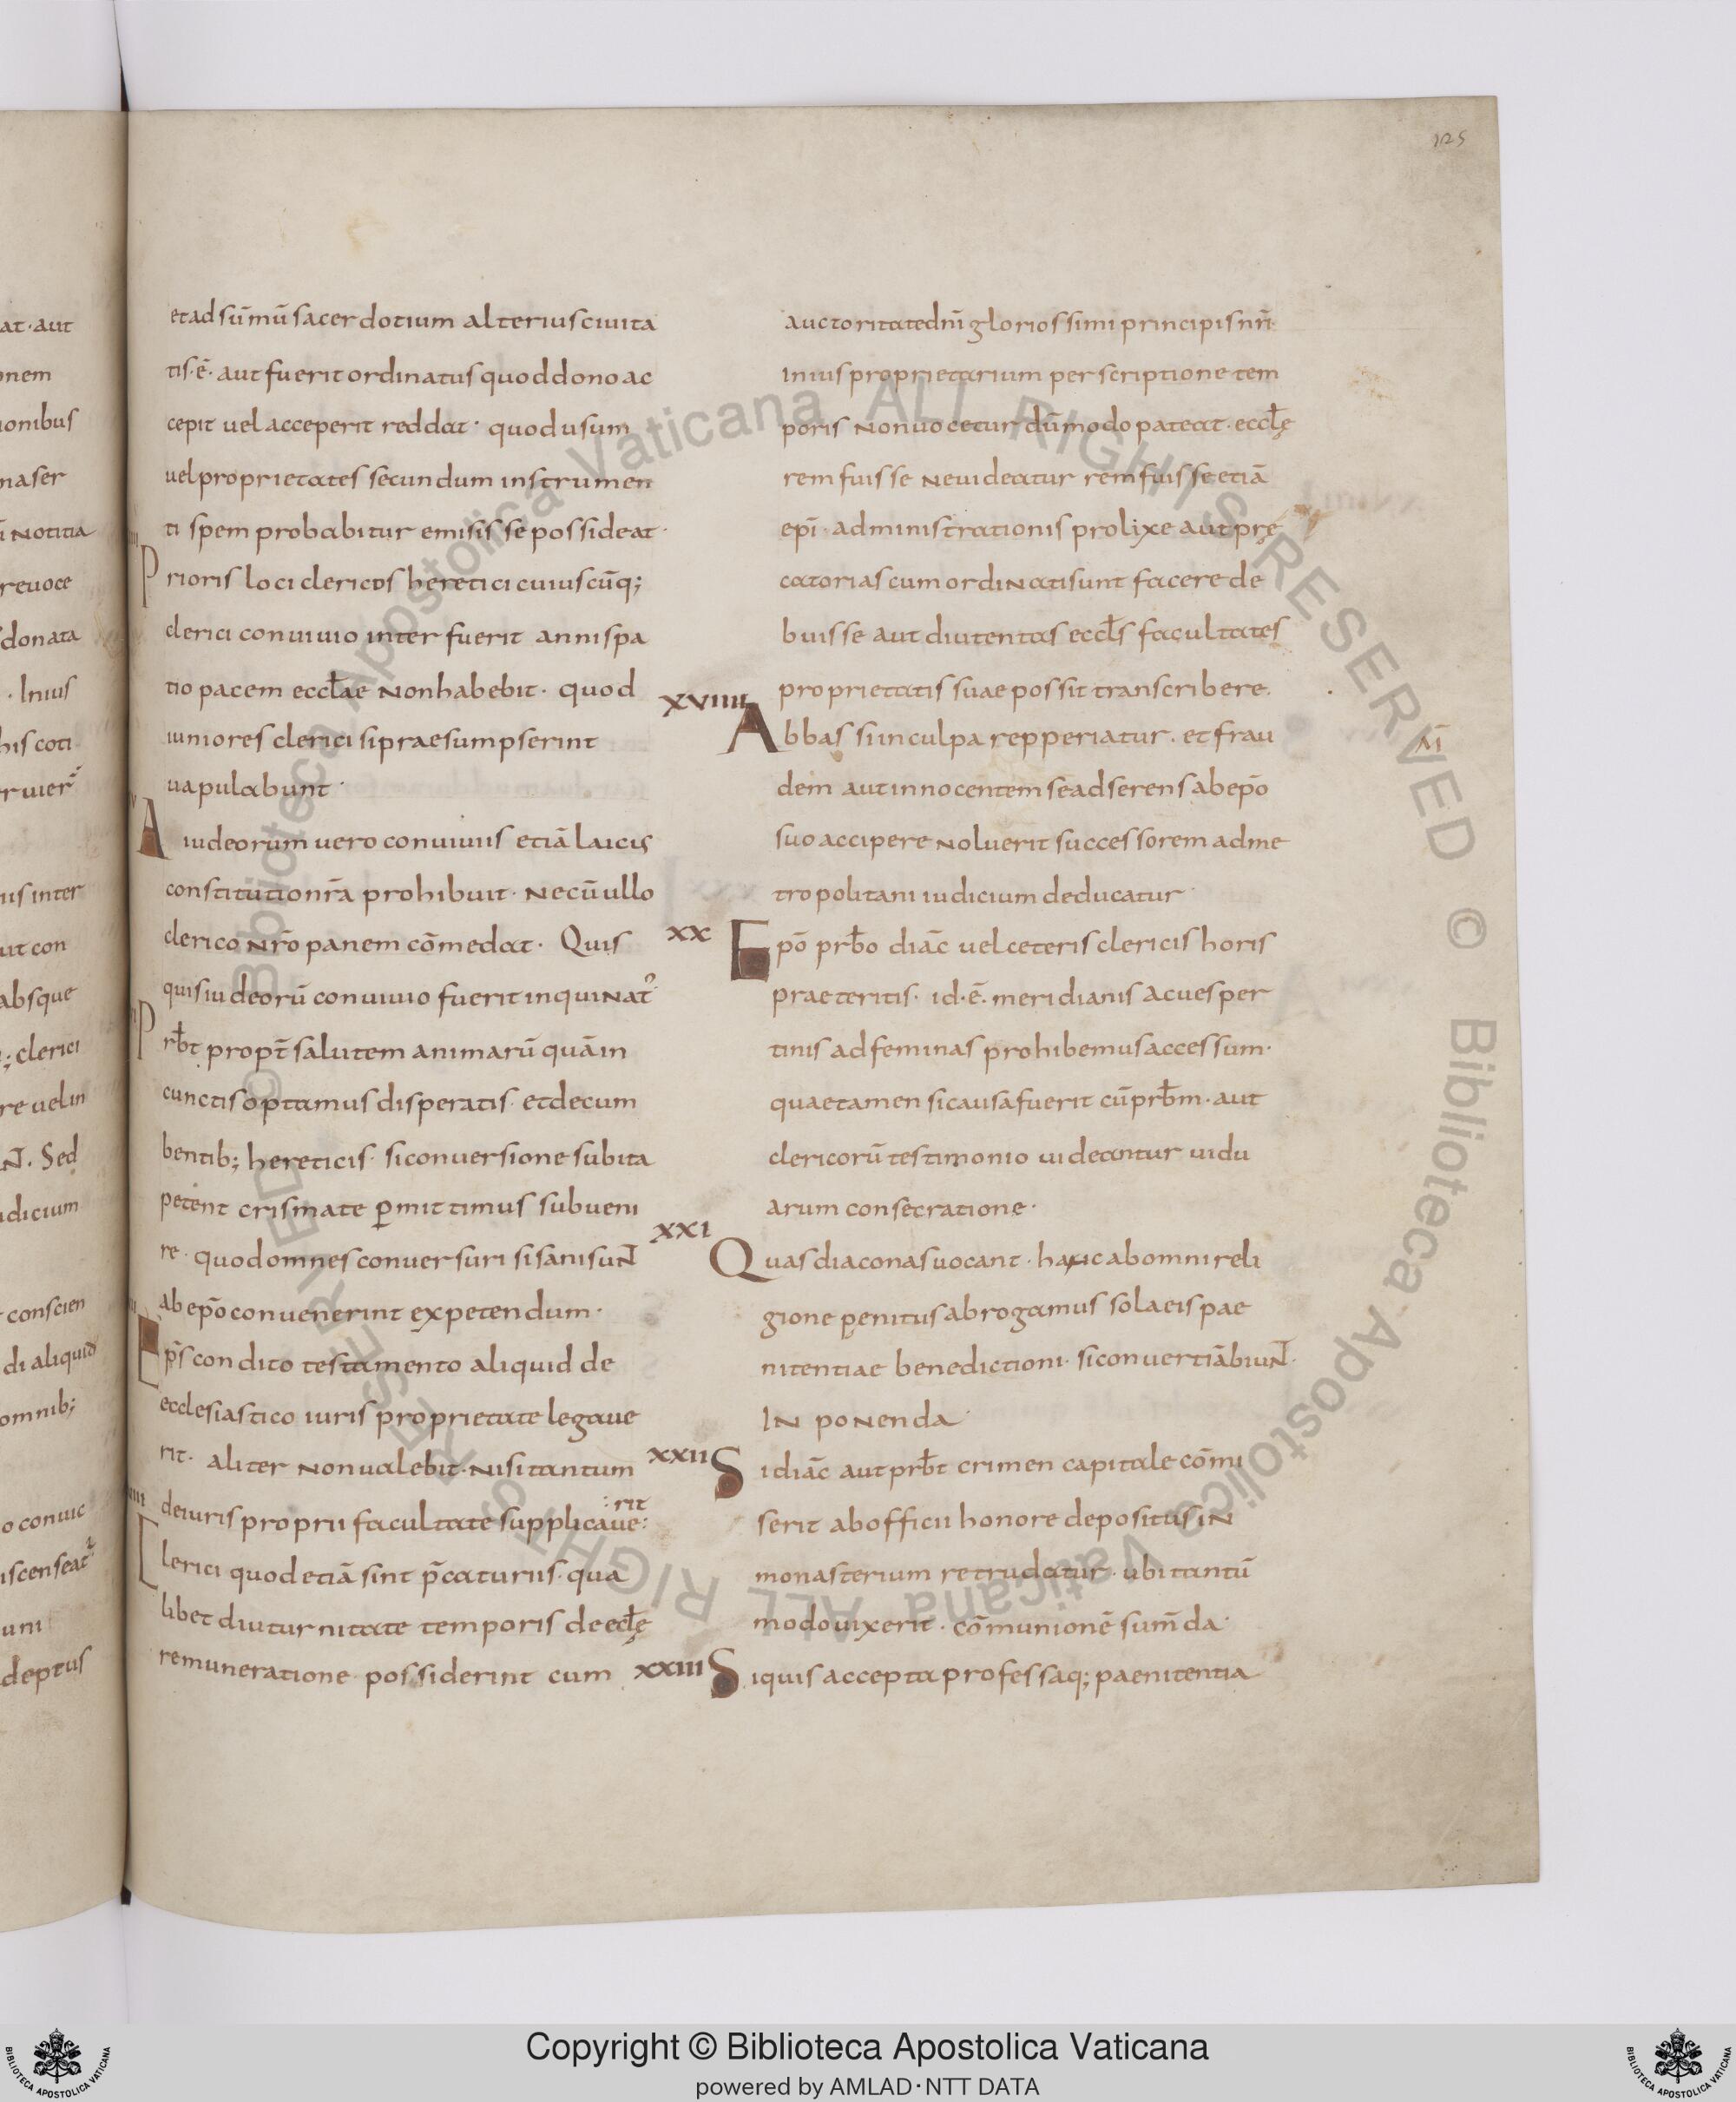 125
et ad sūmū sacerdotium alterius ciuita
tis · ē · aut fuerit ordinatus quod dono ac
cepit uel acceperit reddat · quod usum
uel proprietates secundum instrumen
ti spem probabitur emisisse possideat ·
Prioris loci clericos heretici cuiuscūq;
clerici conuiuio inter fuerit anni spa
tio pacem eccƚae non habebit · quod
iuniores clerici si praesumpserint
uapulabunt ·
A iudeorum uero conuiuiis etiā laicis
constitutio nr̄a prohibuit · Nec cū ullo
clerico nr̄o panem cōmedat · Quis
quis iudeorū conuiuio fuerit inquinat᾽
Prƀt propt̄ salutem animarū quā in
cunctis optamus disperatis · et decum
bentib; hereticis · si conuersione subita
petent crismate ꝑmittimus subueni
re · quod omnes conuersuri si sani sun̄t
ab ep̄o conuenerint expetendum ·
Ep̄s condito testamento aliquid de
ecclesiastico iuris proprietate legaue
rit · aliter non ualebit · nisi tantum
: rit
de iuris proprii facultate supplicaue :
Clerici quod etiā sint p̄caturiis · qua
libet diuturnitate temporis de ecƚę
remuneratione possiderint cum
auctoritate dn̄i gloriossimi principis nr̄i ·
in ius proprietarium perscriptione tem
poris non uocetur dūmodo pateat · eccƚę
rem fuisse ne uideatur rem fuisse etiā
ep̄i · administrationis prolixe aut prę
catorias cum ordinati sunt facere de
buisse aut diu tentas eccƚs facultates
proprietatis suae possit transcribere ·
XVIIII Abbas si in culpa repperiatur · et frau
M̄
dem aut innocentem se adserens ab ep̄o
suo accipere noluerit successorem ad me
tropolitani iudicium deducatur ·
XX Epō prƀo diāc uel ceteris clericis horis
praeteritis · id · ē · meridianis ac uesper
tinis ad feminas prohibemus accessum ·
quae tamen si causa fuerit cū prƀm · aut
clericorū testimonio uideantur uidu
arum consecratione ·
XXI Quas diaconas uocant · hanc ab omni reli
gione penitus abrogamus sola eis pae
nitentiae benedictioni · si conuertiābiun̄t ·
IN ponenda ·
XXII Si diāc aut prƀt crimen capitale cōmi
serit ab officii honore depositus in
monasterium retrudatur · ubi tantū
modo uixerit · cōmunionē sum̄da ·
XXIII Si quis accepta professaq; paenitentia
at · aut
onem
ionibus
naser
notitia
reuoce
donata
· In ius
his coti
iis inter
ut con
absque
; clerici
re uel in
. Sed
udicium
conscien
di aliquid
omnib;
o conuic
iscenseat᾽
uni
deptus
© Biblioteca Apostolica Vaticana ALL RIGHTS RESERVED © Biblioteca Apostolica Vaticana ALL RIGHTS RESERVED
BIBLIOTECA APOSTOLICA VATICANA
Copyright © Biblioteca Apostolica Vaticana
powered by AMLAD·NTT DATA
BIBLIOTECA APOSTOLICA VATICANA